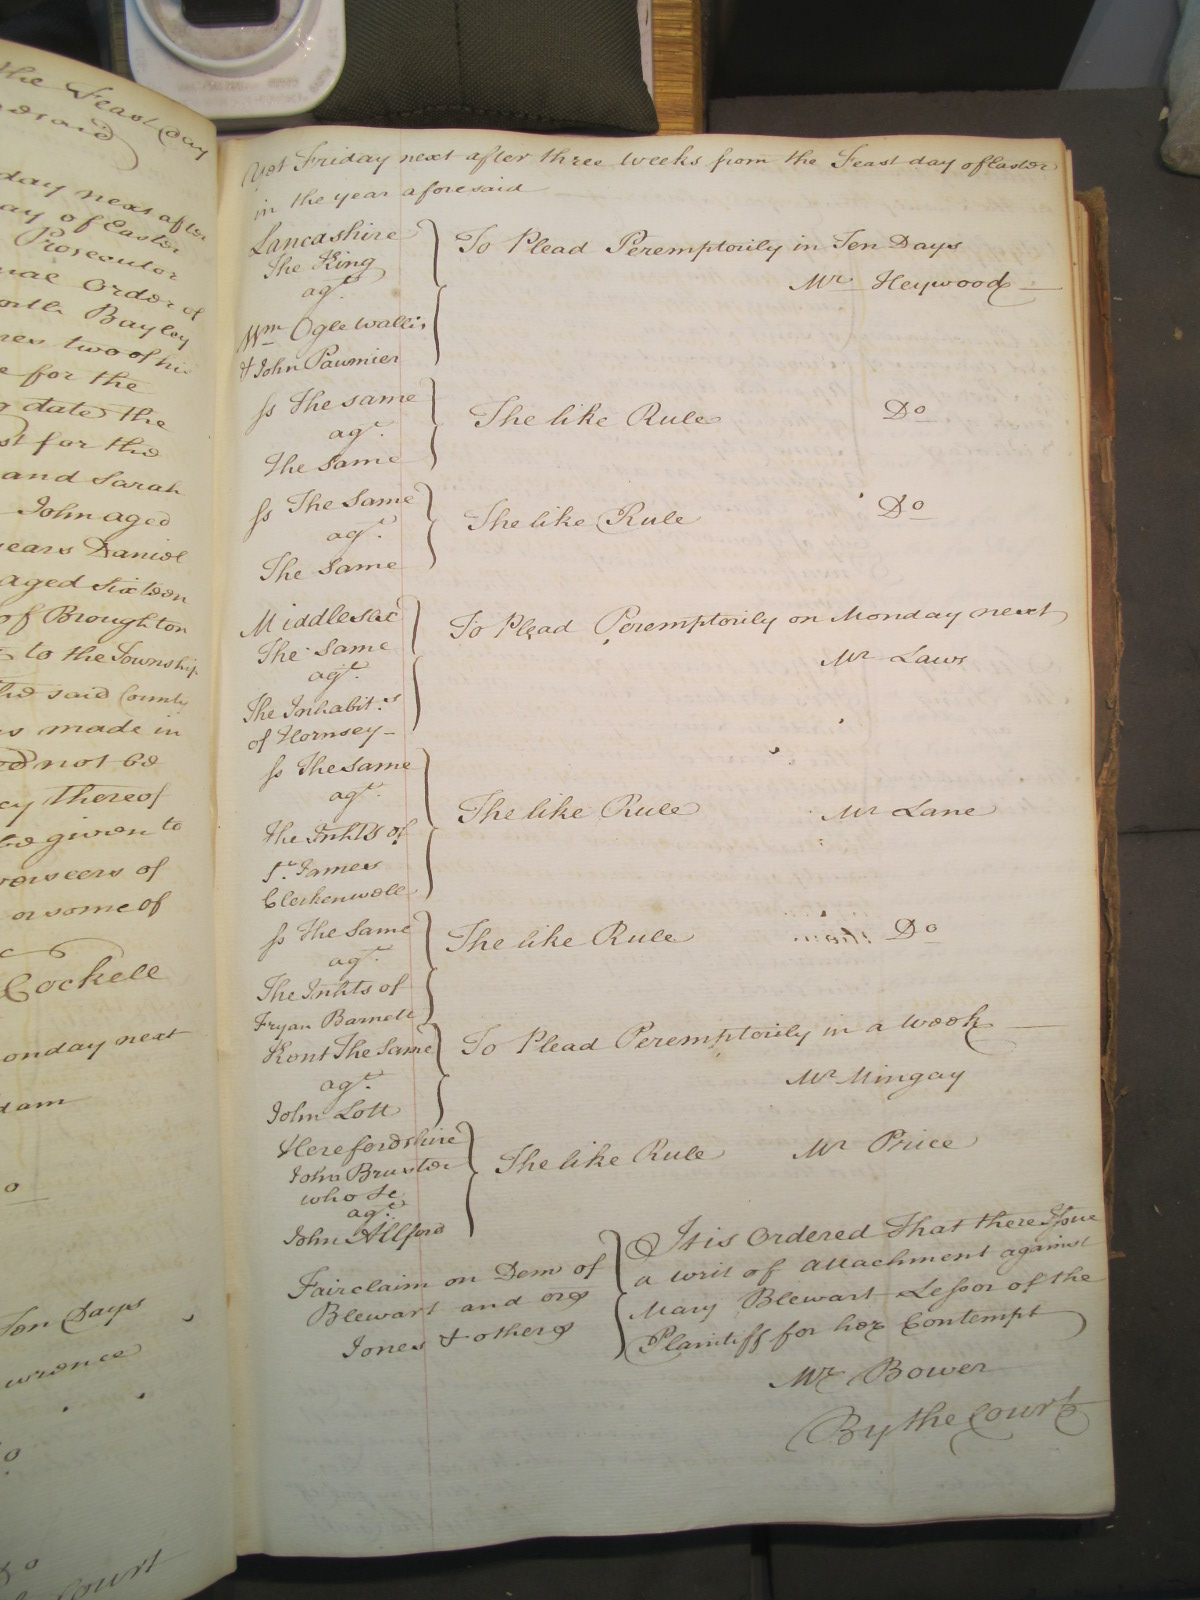 the Feast day
aforesaid
day next after
day of Easter
Prosecutor
Order of
Bayley
two of his
for the
dated the
for the
and Sarah
John aged
years Daniel
aged sixteen
of Broughton
to the Township
the said County
made in
not be
thereof
be given to
Overseers of
or some of
Cockell
Monday next
Ten Days
Court
Yet Friday next after three weeks from the Feast day of Easter
in the year aforesaid
Lancashire
The King
agt.
Wm Ogle Wallis
& John Paumier
To Plead Peremptorily in Ten Days
Mr Heywood
ss The same
agt.
the same
The like Rule Do
ss The Same
agt.
The Same
The like Rule Do
Middlesex
The Same
agt.
The Inhabit.s
of Hornsey
To Plead Peremptorily on Monday next
Mr Laws
ss The same
agt.
the Inhts of
St. James
Clerkenwell
The like Rule Mr Lane
ss The Same
agt.
The Inhts of
Fryan Barnett
The like Rule Do
Kent The Same
agt.
John Lott
To Plead Peremptorily in a week
Mr Mingay
Herefordshire
John Bruster
who &c
agt.
John Allford
The like Rule Mr Price
Fairclaim on Dem of
Blewart and ors
Jones & others
It is Ordered That there Issue
a writ of Attachment against
Mary Blewart Lessor of the
Plaintiff for her Contempt
Mr Bower
By the Court